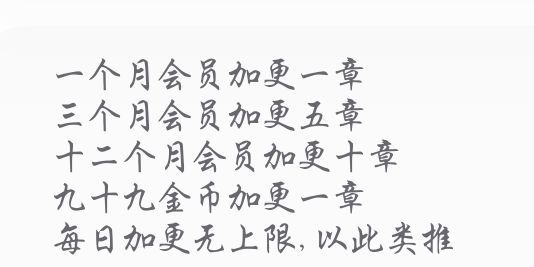 一个月会员加更一章
三个月会员加更五章
十二个月会员加更十章
九十九金币加更一章
每日加更无上限,以此类推